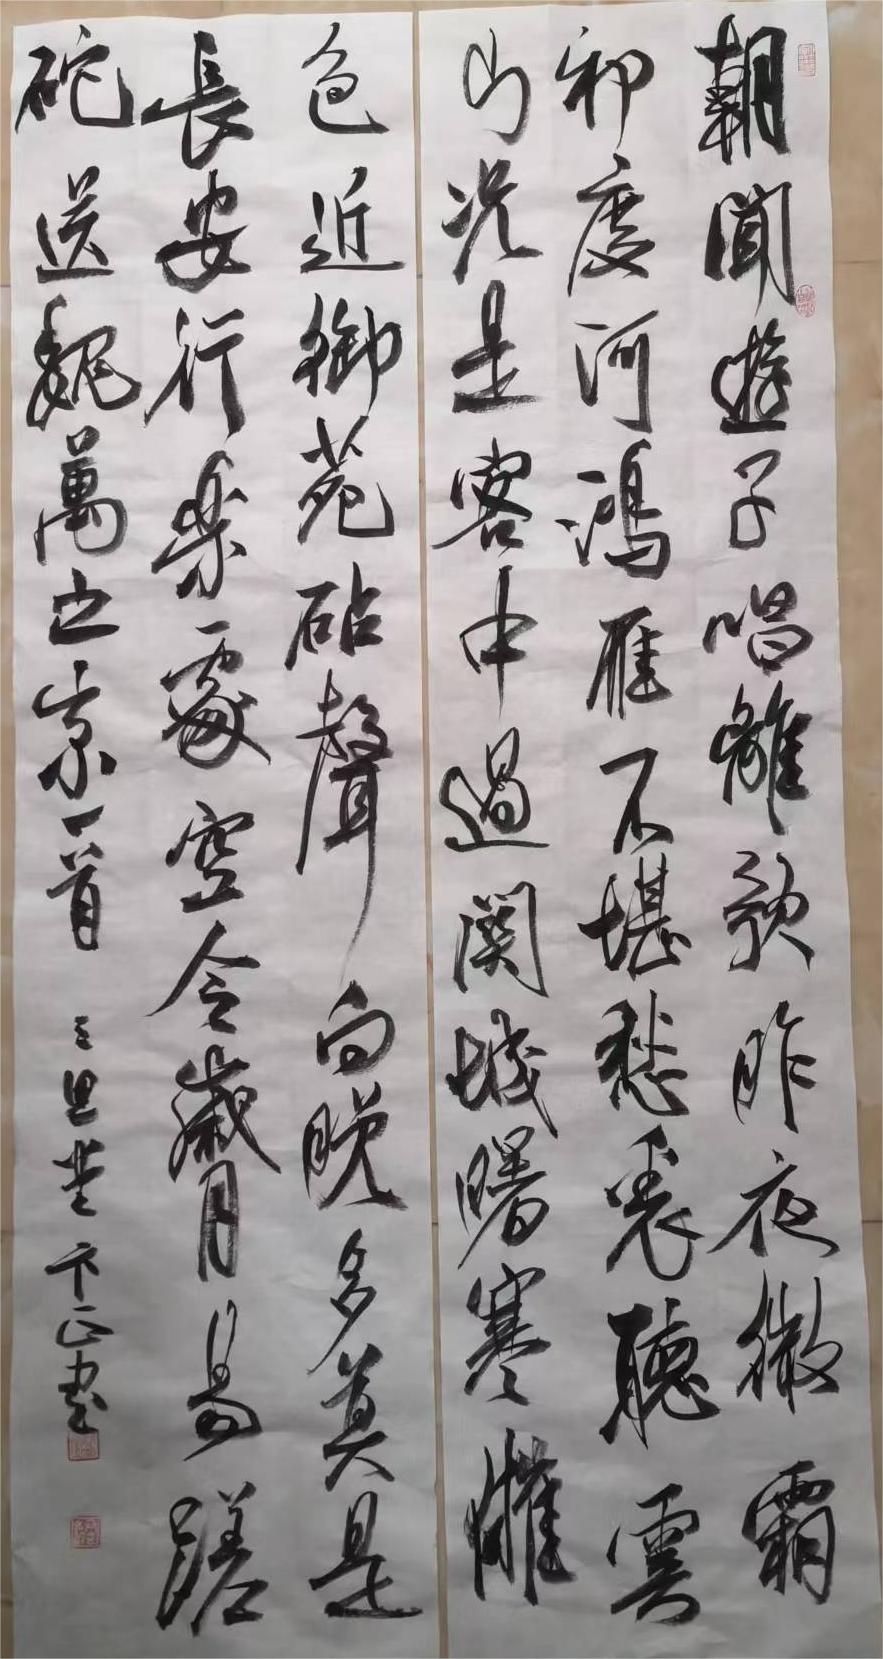 朝聞遊子唱離歌昨夜微霜
初度河鴻雁不堪愁裏聽雲
山況是客中過關城曙寒催
色近御苑砧聲向晚多莫是
長安行楽處空令歲月易蹉
砣送魏萬之京一首 卞正書